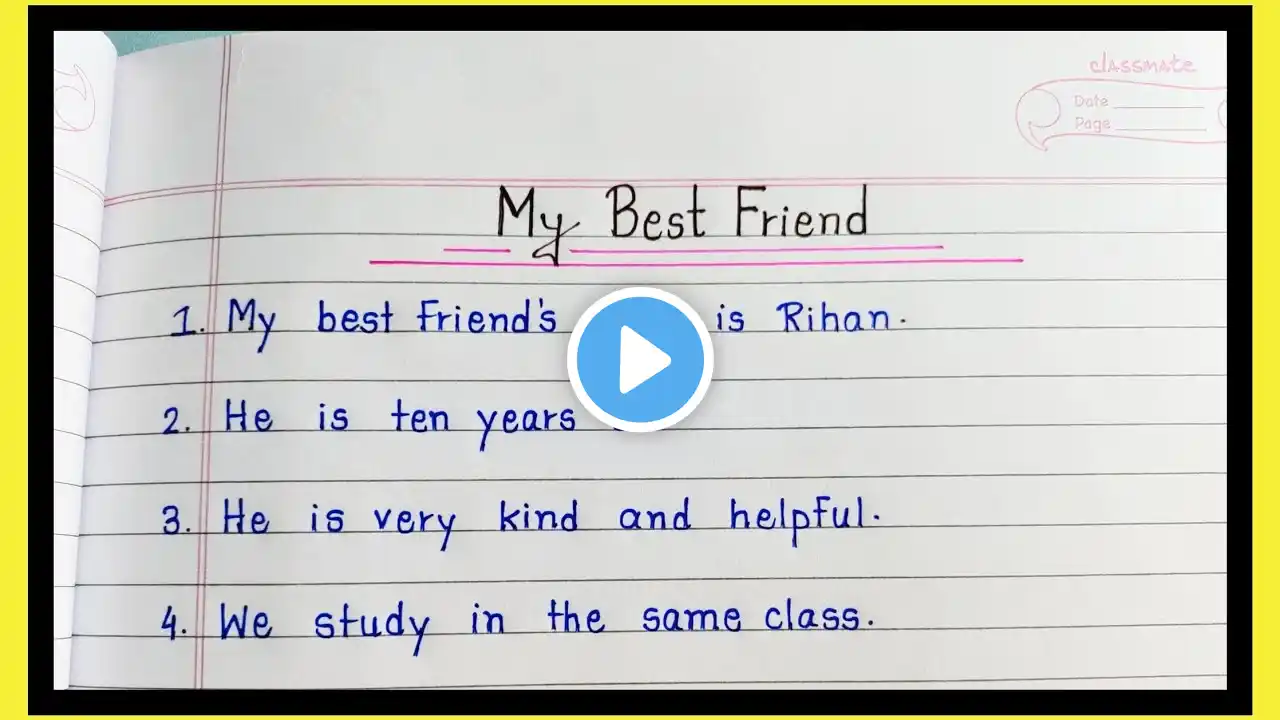 classmate
Date
Page
My Best Friend
1. My best Friend's is Rihan.
2. He is ten years
3. He is very kind and helpful.
4. We study in the same class.